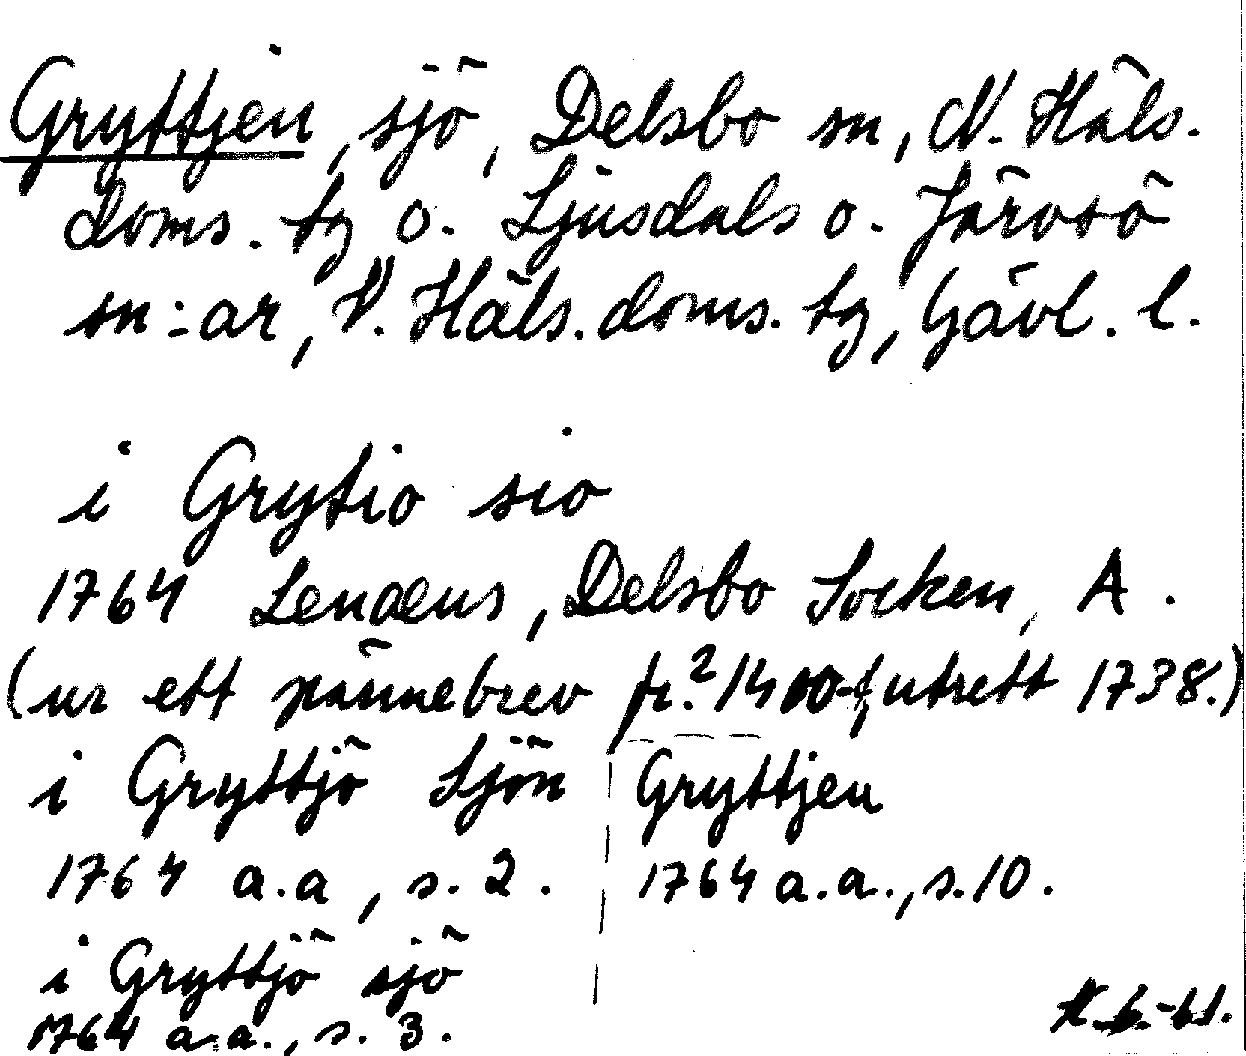 Gryttjen, sjö, Delsbo sn, N. Häls.
doms. tg o. Ljusdals o. Järvsö
sn:ar, V. Häls. doms. tg, Gävl. l.
i Grytio sio
1764 Lenæus, Delsbo Socken, A.
(ur ett pännebrev fr. 1400-t, utrett 1738.)
i Gryttjö Sjön
1764 a.a, s. 2.
Gryttjen
1764 a.a., s. 10.
i Gryttjö sjö
1764 a.a., s. 3.